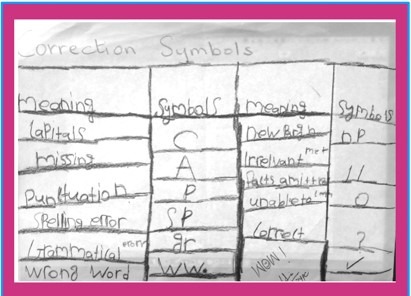 Correction Symbols
meaning symbols meaning symbols
Capitals C new
missing A Irrelvant
Punctuation P facts
Spelling error SP unable to O
Grammatical error gr Correct ?
wrong word ww. WOW! ✓